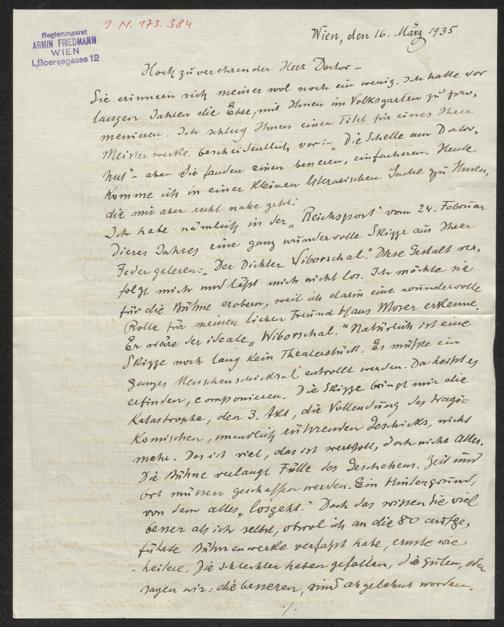 I. N. 173.384
Regierungsrat
ARMIN FRIEDMANN
WIEN
I., Boersegasse 12
Wien, den 16. März 1935
Hoch zu verehrender Herr Doctor –
Sie erinnern sich meiner wol noch ein wenig. Ich hatte vor
langen Jahren die Ehre, mit Ihnen im Volksgarten zu pro-
menieren. Ich schlug Ihnen einen Titel für eines Ihrer
Meisterwerke bescheidentlich vor: – „Die Schelle am Doktor-
hut“ – aber Sie fanden einen besseren, einfacheren. Heute
komme ich in einer kleinen literarischen Sache zu Ihnen,
die mir aber recht nahe geht.
Ich habe nämlich in der „Reichspost“ vom 24. Februar
dieses Jahres eine ganz wundervolle Skizze aus Ihrer
Feder gelesen: „Der Dichter Wiborschal.“ Diese Gestalt ver-
folgt mich und läßt mich nicht los. Ich möchte sie
für die Bühne erobern, weil ich darin eine wundervolle
Rolle für meinen lieben Freund Hans Moser erkenne.
Er wäre der ideale „Wiborschal.“ Natürlich ist eine
Skizze noch lang kein Theaterstück. Es müßte ein
ganzes Menschenschicksal entrollt werden. Da heißt es
erfinden, componieren. Die Skizze bringt mir die
Katastrophe, den 3. Akt, die Vollendung des tragi-
komischen, unendlich rührenden Geschicks, nicht
mehr. Das ist viel, das ist wertvoll, doch nicht Alles.
Die Bühne verlangt Fülle des Geschehens. Zeit und
Ort müssen geschaffen werden. Ein Hintergrund,
von dem alles „losgeht.“ Doch das wissen Sie viel
besser als ich selbst, obwol ich an die 80 aufge-
führte Bühnenwerke verfasst habe, ernste wie
heitere. Die schlechten haben gefallen, die guten, oder
sagen wir: die besseren, sind abgelehnt worden.
./.